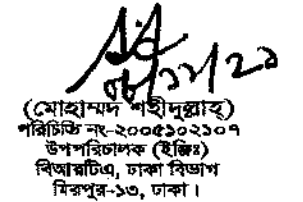 ০৮/১১/২১
(মোহাম্মদ শহীদুল্লাহ)
পরিচিতি নং-২০০৫১০২১০৭
উপপরিচালক (ইঞ্জিঃ)
বিআরটিএ, ঢাকা বিভাগ
মিরপুর-১৩, ঢাকা।